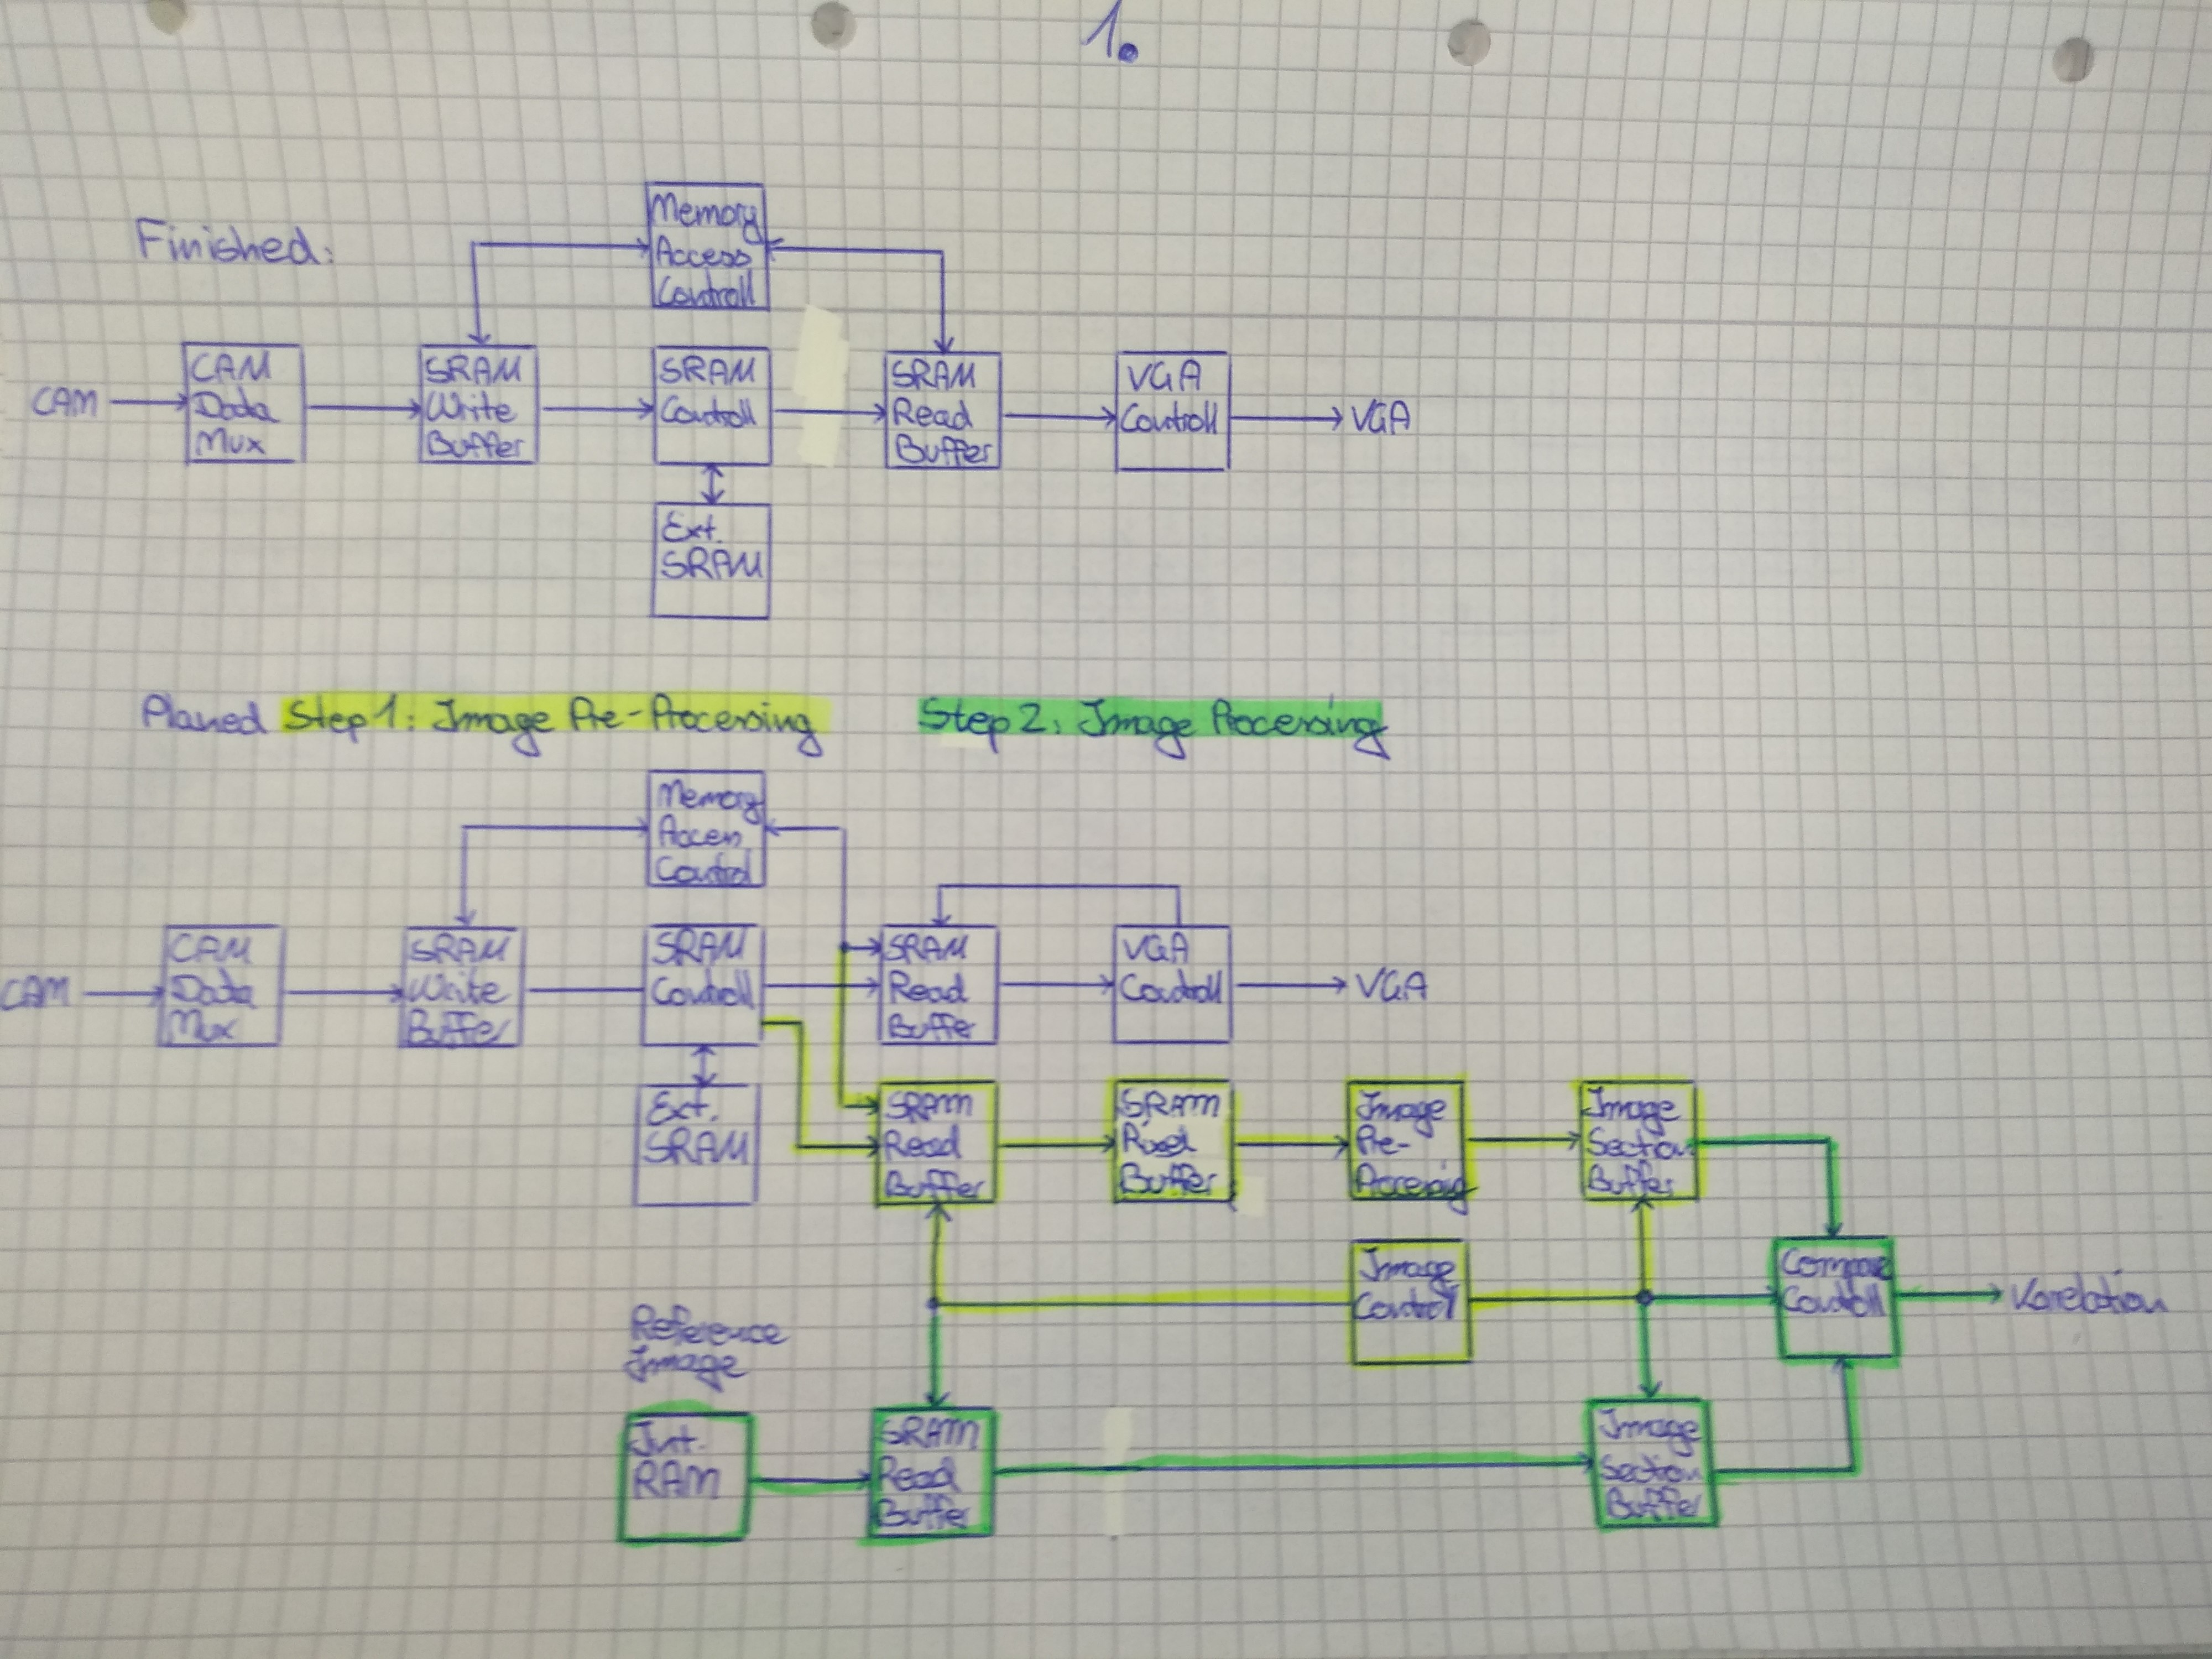 1.
Finished:
Memory
Access
Controll
CAM
CAM
Data
Mux
SRAM
Write
Buffer
SRAM
Controll
SRAM
Read
Buffer
VGA
Controll
VGA
Ext.
SRAM
Planed Step 1: Image Pre-Processing
Step 2: Image Processing
Memory
Access
Control
CAM
CAM
Data
Mux
SRAM
Write
Buffer
SRAM
Controll
SRAM
Read
Buffer
VGA
Controll
VGA
Ext.
SRAM
SRAM
Read
Buffer
SRAM
Read
Buffer
Image
Pre-
Processing
Image
Section
Buffer
Image
Controll
Compare
Controll
Korelation
Reference
Image
Int.
RAM
SRAM
Read
Buffer
Image
Section
Buffer